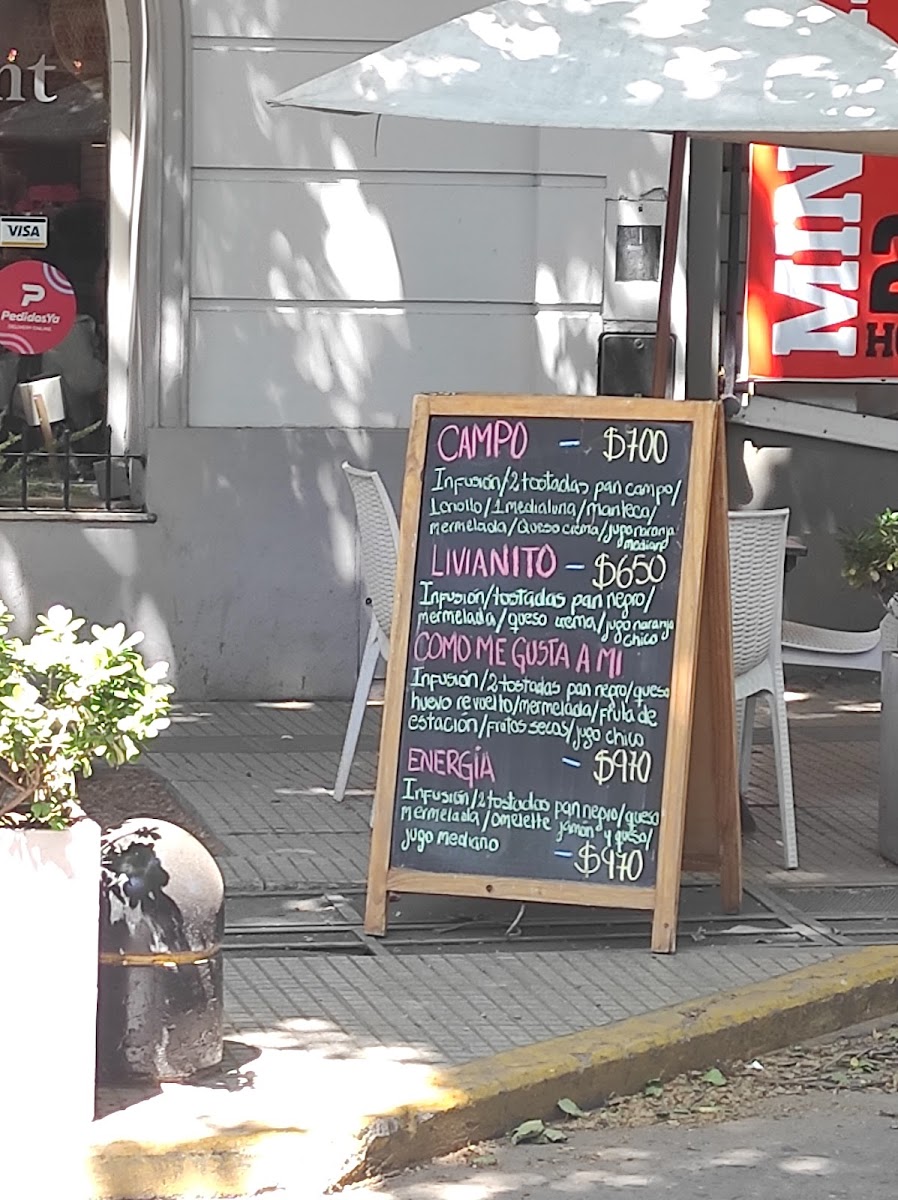 nt
VISA
PedidosYa
DELIVERY ONLINE
MIN
CAMPO - $700
Infusión/2 tostadas pan campo/
1 medialuna/manteca/
mermelada/queso crema/jugo naranja
mediano
LIVIANITO - $650
Infusión/tostadas pan negro/
mermelada/queso crema/jugo naranja
chico
COMO ME GUSTA A MI
Infusión/2 tostadas pan negro/queso
huevo revuelto/mermelada/fruta de
estación/frutos secos/jugo chico
- $970
ENERGÍA
Infusión/2 tostadas pan negro/queso
mermelada/omelette jamón y queso/
jugo mediano
- $970